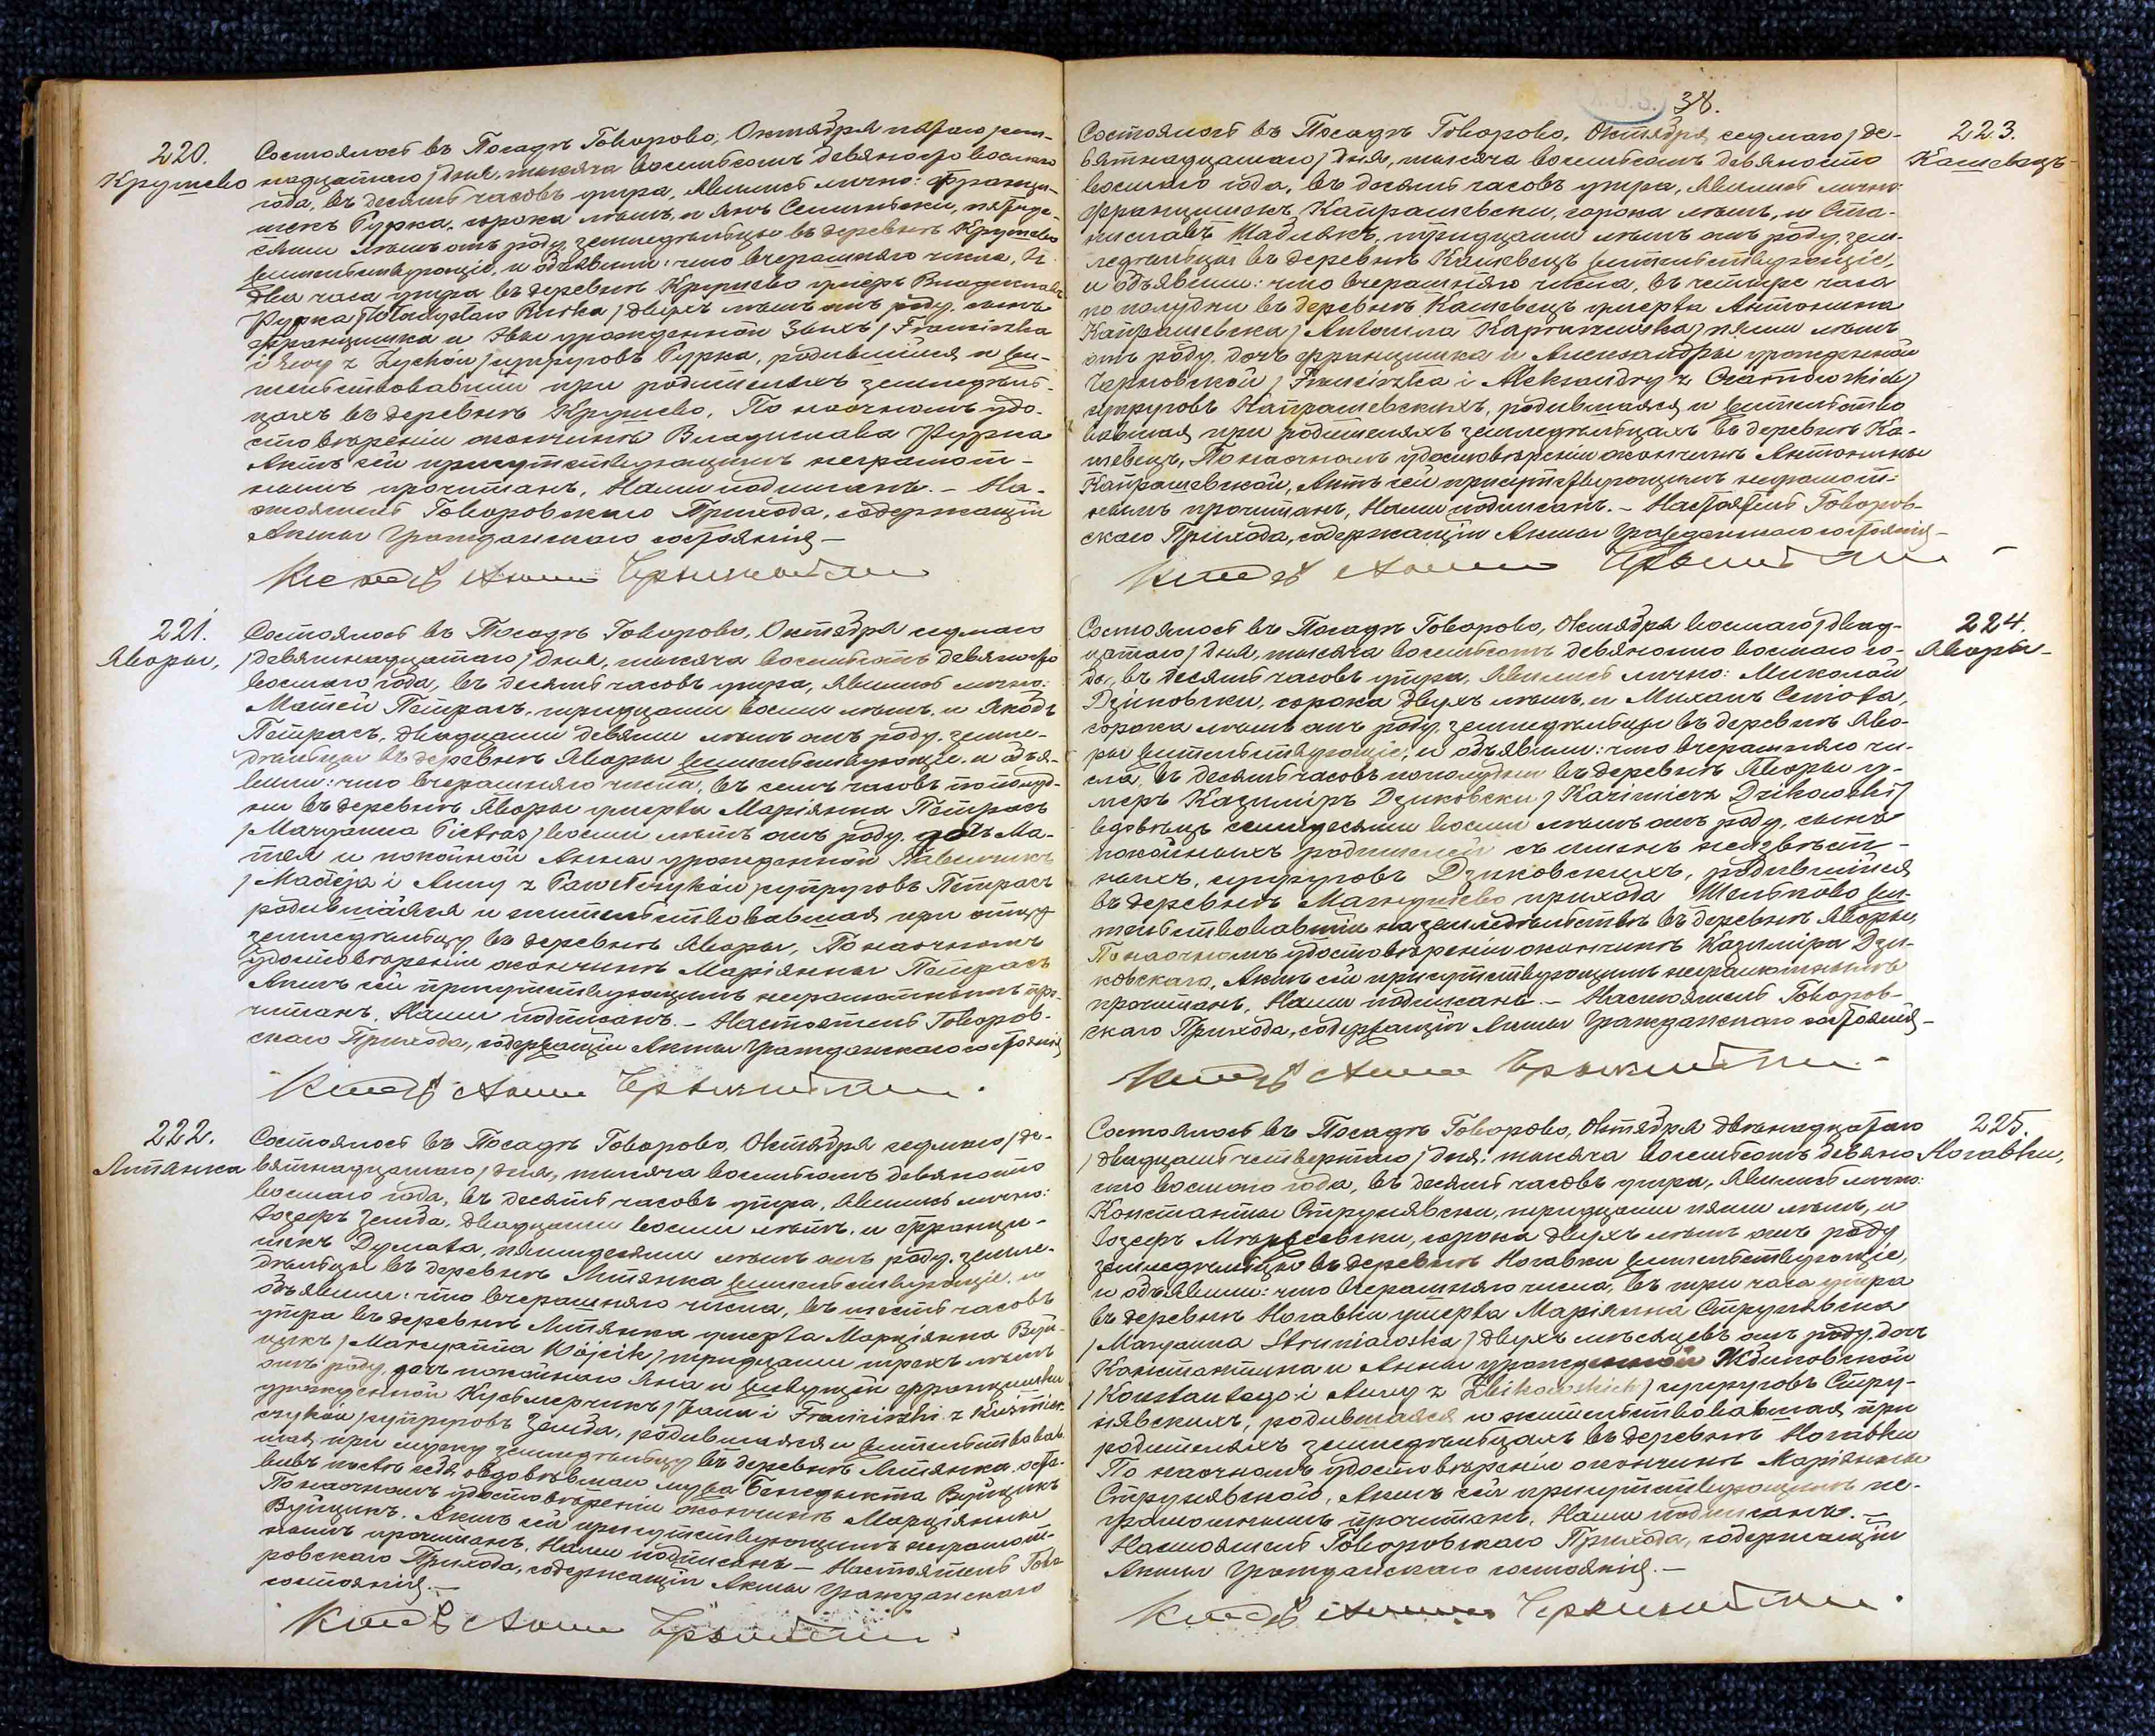 220.
Крушево
Состоялось въ Посадѣ Говорово, Октября пятаго /сем-
надцатаго/ дня, тысяча восемьсотъ девяносто восьмаго
года, въ десять часовъ утра, Явились лично: Франци-
шекъ Рурка, сорока лѣтъ, и Янъ Сешнѣски, пятьде-
сяти лѣтъ отъ роду, земледѣльцы въ деревнѣ Крушево
жительствующіе, и объявили: что вчерашняго числа, въ
два часа утра въ деревнѣ Крушево умеръ Владиславъ
Рурка /Władysław Rurka/ двухъ лѣтъ отъ роду, сынъ
Францишка и Эвы урожденной Зыхъ /Franciszka
i Ewy z Zychów/ супруговъ Рурка, родившійся и жи-
тельствовавшій при родителяхъ земледѣль-
цахъ въ деревнѣ Крушево. По наочномъ удо-
стовѣреніи окончинѣ Владислава Рурка
Актъ сей присутствующимъ неграмот-
нымъ прочитанъ, Нами подписанъ. – На-
стоятель Говоровскаго Прихода, содержащій
Акты Гражданскаго состоянія –
221.
Яворы,
Состоялось въ Посадѣ Говорово, Октября седмаго
/девятнадцатаго/ дня, тысяча восемьсотъ девяносто
восьмаго года, въ десять часовъ утра, Явились лично:
Матей Петрась, тридцати восьми лѣтъ, и Якобъ
Петрась, двадцати девяти лѣтъ отъ роду, земле-
дѣльцы въ деревнѣ Яворы жительствующіе, и объя-
вили: что вчерашняго числа, въ семь часовъ пополуд-
ни въ деревнѣ Яворы умерла Маріянна Петрась
/Maryanna Pietraś/ восьми лѣтъ отъ роду, дочь Ма-
тея и покойной Анны урожденной Павельчикъ
/Macieja i Anny z Pawełczyków/ супруговъ Петрась
родившаяся и жительствовавшая при отцу
земледѣльцу въ деревнѣ Яворы, По наочномъ
удостовѣреніи окончинѣ Маріянны Петрась
Актъ сей присутствующимъ неграмотнымъ про-
читанъ, Нами подписанъ. – Настоятель Говоров-
скаго Прихода, содержащій Акты Гражданскаго состоянія
222.
Литянка
Состоялось въ Посадѣ Говорово, Октября седмаго /де-
вятнадцатаго/ дня, тысяча восемьсотъ девяносто
восьмаго года, въ десять часовъ утра, Явились лично:
Іозефъ Зелда, двадцати восьми лѣтъ, и Франци-
шекъ Думала, пятидесяти лѣтъ отъ роду, земле-
дѣльцы въ деревнѣ Литянка жительствующіе, и
объявили: что вчерашняго числа, въ шесть часовъ
утра въ деревнѣ Литянка умерла Марціянна Вуй-
цикъ /Marcyanna Wójcik/ тридцати трехъ лѣтъ
отъ роду, дочь покойнаго Яна и живущей Францишки
урожденной Кусьмерчикъ /Jana i Franciszki z Kuśmier-
czyków/ супруговъ Зелда, родившаяся и жительствовав-
шая при мужу земледѣльцу въ деревнѣ Литянка, оста-
вивъ послѣ себя овдовѣвшаго мужа Бенедыкта Вуйцикъ
По наочномъ удостовѣреніи окончинѣ Марціянны
Вуйцикъ. Актъ сей присутствующимъ неграмот-
нымъ прочитанъ, Нами подписанъ – Настоятель Гово-
ровскаго Прихода, содержащій Акты Гражданскаго
состоянія. –
38.
223.
Кашевецъ
Состоялось въ Посадѣ Говорово, Октября седмаго /де-
вятнадцатаго/ дня, тысяча восемьсотъ девяносто
восьмаго года, въ десять часовъ утра, Явились лично:
Францишекъ Капрашевски, сорока лѣтъ, и Ста-
ниславъ Шадлякъ, тридцати лѣтъ отъ роду, зем-
ледѣльцы въ деревнѣ Кашевецъ жительствующіе,
и объявили: что вчерашняго числа, въ четыре часа
по полудни въ деревнѣ Кашевецъ умерла Антонина
Капрашевска /Antonina Kapraszewska/ пяти лѣтъ
отъ роду, дочь Францишка и Александры урожденной
Чарновской /Franciszka i Aleksandry z Czarnowskich/
супруговъ Капрашевскихъ, родившаяся и жительство
вавшая при родителяхъ земледѣльцахъ въ деревнѣ Ка-
шевецъ, По наочномъ удостовѣреніи окончинѣ Антонины
Капрашевской, Актъ сей присутствующимъ неграмот-
нымъ прочитанъ, Нами подписанъ. – Настоятель Говоров-
скаго Прихода, содержащій Акты Гражданскаго состоянія –
224.
Яворы –
Состоялось въ Посадѣ Говорово, Октября восьмаго /двад-
цатаго/ дня, тысяча восемьсотъ девяносто восьмаго го-
да, въ десять часовъ утра, Явились лично: Миколай
Дзиковски, сорока двухъ лѣтъ, и Михалъ
сорока лѣтъ отъ роду, земледѣльцы въ деревнѣ Яво-
ры жительствующіе, и объявили: что вчерашняго чи-
сла, въ десять часовъ пополудни въ деревнѣ Яворы у-
меръ Казимиръ Дзиковски /Kazimierz Dzikowski/
вдовецъ семидесяти восьми лѣтъ отъ роду, сынъ
покойныхъ родителей съ именъ неизвѣст-
ныхъ, супруговъ Дзиковскихъ, родившійся
въ деревнѣ Магнушево прихода Шельково жи-
тельствовавшій на земледѣльствѣ въ деревнѣ Яворы,
По наочномъ удостовѣреніи окончинѣ Казимира Дзи-
ковскаго, Актъ сей присутствующимъ неграмотнымъ
прочитанъ, Нами подписанъ. – Настоятель Говоров-
скаго Прихода, содержащій Акты Гражданскаго состоянія –
225.
Ногавки,
Состоялось въ Посадѣ Говорово, Октября двѣнадцатаго
/двадцать четвертаго/ дня, тысяча восемьсотъ девяно
сто восьмаго года, въ десять часовъ утра, Явились лично:
Константы Струнявски, тридцати пяти лѣтъ, и
Іозефъ сорока двухъ лѣтъ отъ роду
земледѣльцы въ деревнѣ Ногавки жительствующіе,
и объявили: что вчерашняго числа, въ три часа утра
въ деревнѣ Ногавки умерла Маріянна Струнявска
/Maryanna Struniawska/ двухъ мѣсяцевъ отъ роду, дочь
Константина и Анны урожденной Жбиковской
/Konstantego i Anny z Żbikowskich/ супруговъ Стру-
нявскихъ, родившаяся и жительствовавшая при
родителяхъ земледѣльцахъ въ деревнѣ Ногавки
По наочномъ удостовѣреніи окончинѣ Маріянны
Струнявской, Актъ сей присутствующимъ не-
грамотнымъ прочитанъ, Нами подписанъ. –
Настоятель Говоровскаго Прихода, содержащій
Акты Гражданскаго состоянія. –